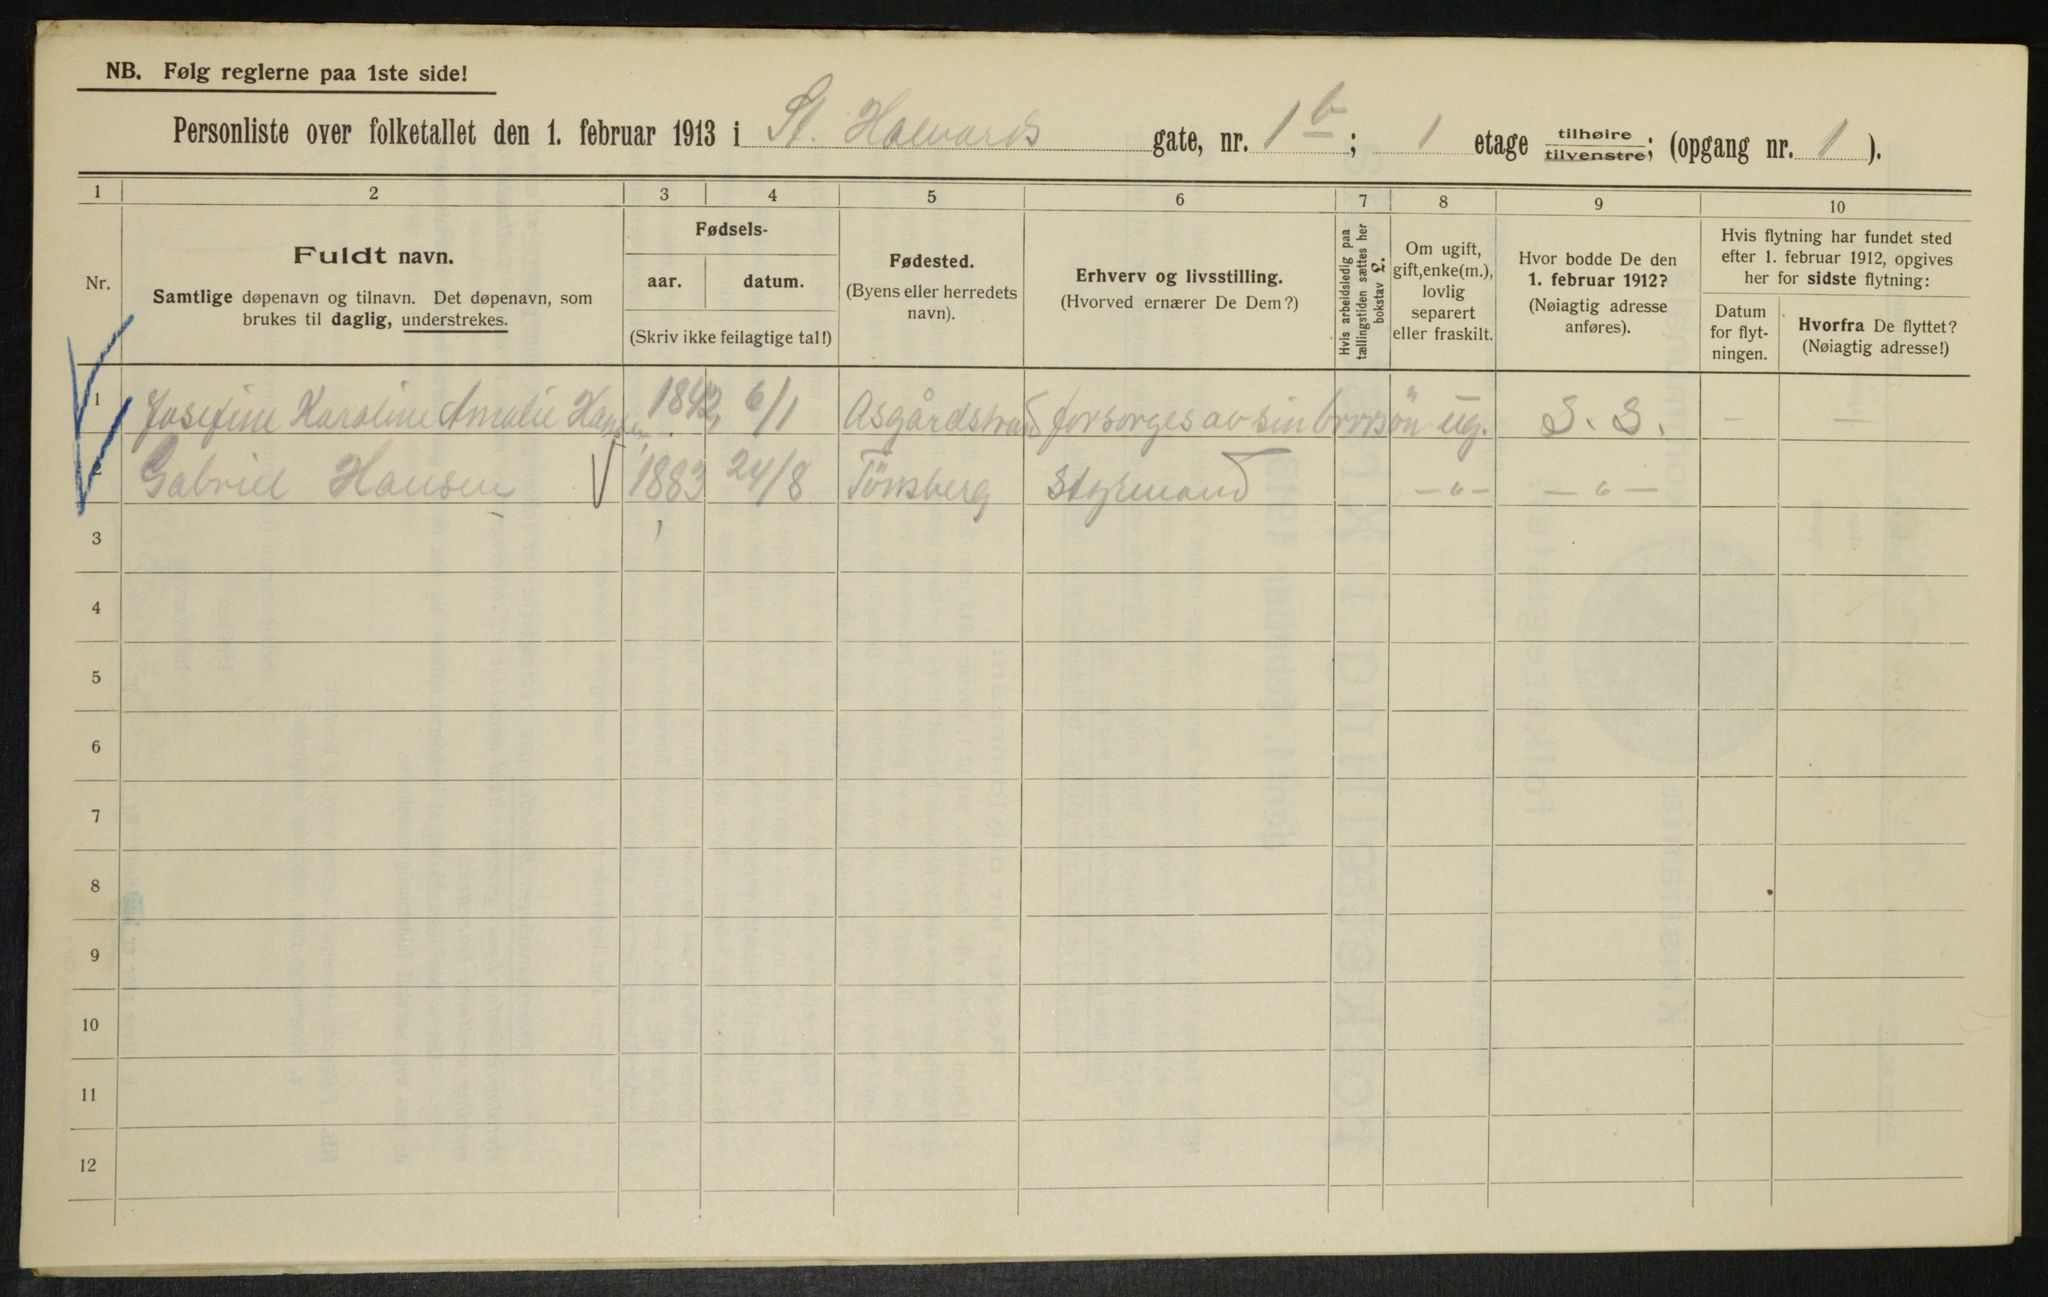 NB. Følg reglerne paa 1ste side!
Personliste over folketallet den 1. februar 1913 i St. Halvards gate, nr. 1 b; 1 etage tilhøire/tilvenstre; (opgang nr. 1).
1 2 3 4 5 6 7 8 9 10
Nr.
Fuldt navn.
Samtlige døpenavn og tilnavn. Det døpenavn, som
brukes til daglig, understrekes.
Fødsels-
aar. datum.
(Skriv ikke feilagtige tal!)
Fødested.
(Byens eller herredets
navn).
Erhverv og livsstilling.
(Hvorved ernærer De Dem?)
Hvis arbeidsledig paa
tællingstiden sættes her
bokstav L.
Om ugift,
gift, enke(m.),
lovlig
separert
eller fraskilt.
Hvor bodde De den
1. februar 1912?
(Nøiagtig adresse
anføres).
Hvis flytning har fundet sted
efter 1. februar 1912, opgives
her for sidste flytning:
Datum
for flyt-
ningen.
Hvorfra De flyttet?
(Nøiagtig adresse!)
1 Josefine Karoline Amalie Hansen 1842, 6/1 Asgårdstrand forsorges av sin brorsön ug. S. S. —
2 Gabriel Hansen 1883 24/8 Tönsberg Styrmand — " — — " —
3
4
5
6
7
8
9
10
11
12